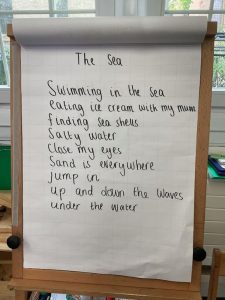 The Sea
Swimming in the sea
eating ice cream with my mum
finding sea shells
Salty water
Close my eyes
Sand is everywhere
Jump in
up and down the waves
under the water